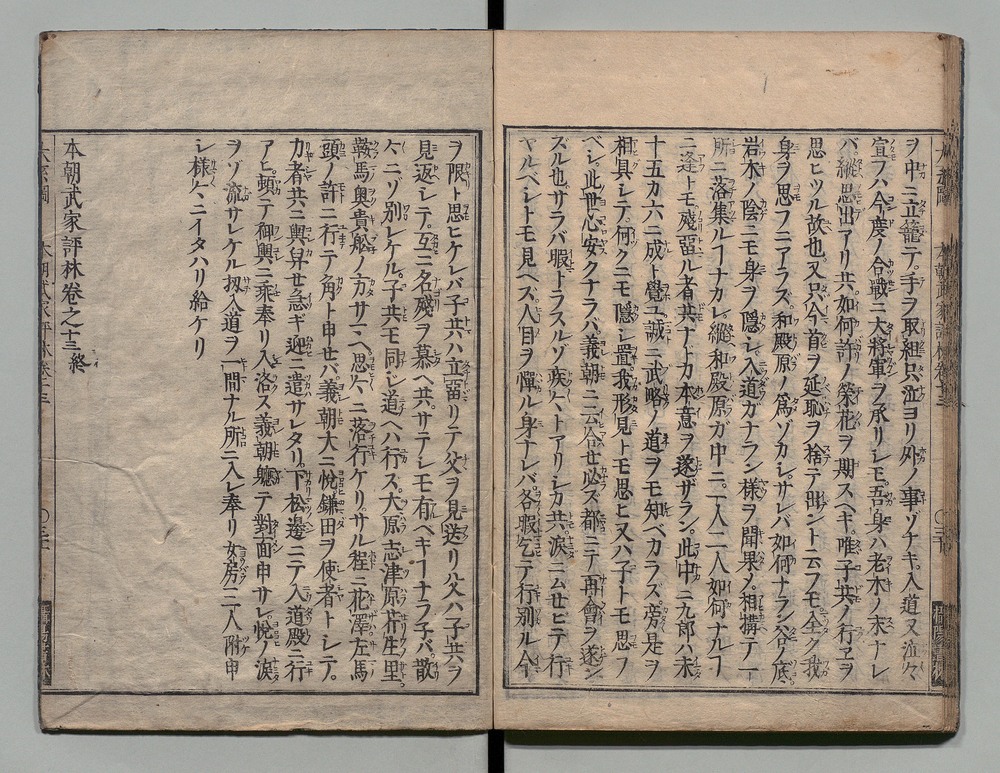 ヲ中ニ立籠テ。手ヲ取組只泣ヨリ外ノ事ゾナキ。入道又泣々
宣フハ今度ノ合戦ニ大將軍ヲ承リシモ。吾身ハ老木ノ末ナレ
バ縱思出アリ共。如何許ノ榮花ヲ期スヘキ。唯子共ノ行ヱヲ
思ヒツル故也。又只今首ヲ延恥ヲ捨テ出ント云フモ。全ク我
身ヲ思フニアラズ。和殿原ノ爲ゾカシ。サレバ如何ナラン谷ノ底
岩木ノ陰ニモ身ヲ隱シ。入道ガナラン樣ヲ聞果ノ。相構テ一
所ニ落集ルヿナカレ。縱和殿原ガ中ニ。一人二人如何ナルヿ
ニ逢トモ。殘畱ル者共ナトカ本意ヲ遂ザラン。此中ニ九郎ハ未
十五カ六ニ成ト覺ユ。誠ニ武略ノ道ヲモ知ベカラズ。旁是ヲ
相具シテ。何クニモ隱シ置。我形見トモ思ヒ。又ハ子トモ思フ
ベシ。此世心安クナラバ。義朝ニ云合セ必ズ都ニテ再會ヲ遂ン
スル也。サラバ暇トラスルソ。疾〱トアリシカ共。涙ニムセヒテ行
ヤルベシトモ見ヘズ。人目ヲ憚ル身ナレバ。各暇乞テ行別ル。今
ヲ限ト思ヒケレバ。子共ハ立畱リテ父ヲ見送リ。父ハ子共ヲ
見返シテ。互ニ名殘ヲ慕ヘ共。サテシモ有ヘキヿナラ子バ。散
〱ニゾ別レケル。子共モ同シ道ヘハ行ス。大原志津原芹生里。
鞍馬奥貴舩ノ方サマヘ。思〱ニ落行ケリ。サル程ニ花澤左馬
頭ノ許ニ行テ。角ト申セバ。義朝大ニ悦。鎌田ヲ使者トレテ。
力者共ニ輿舁セ急ギ迎ニ遣サレタリ。下松邊ニテ入道殿ニ行
アヒ。頓テ御輿ニ乘奉リ入洛ス。義朝軈テ對面申サレ。悦ノ涙
ヲゾ流サレケル。扨入道ヲ一間ナル所ニ入レ奉リ。女房二人附申
シ。樣〱ニイタハリ給ケリ
本朝武家評林卷之十三終